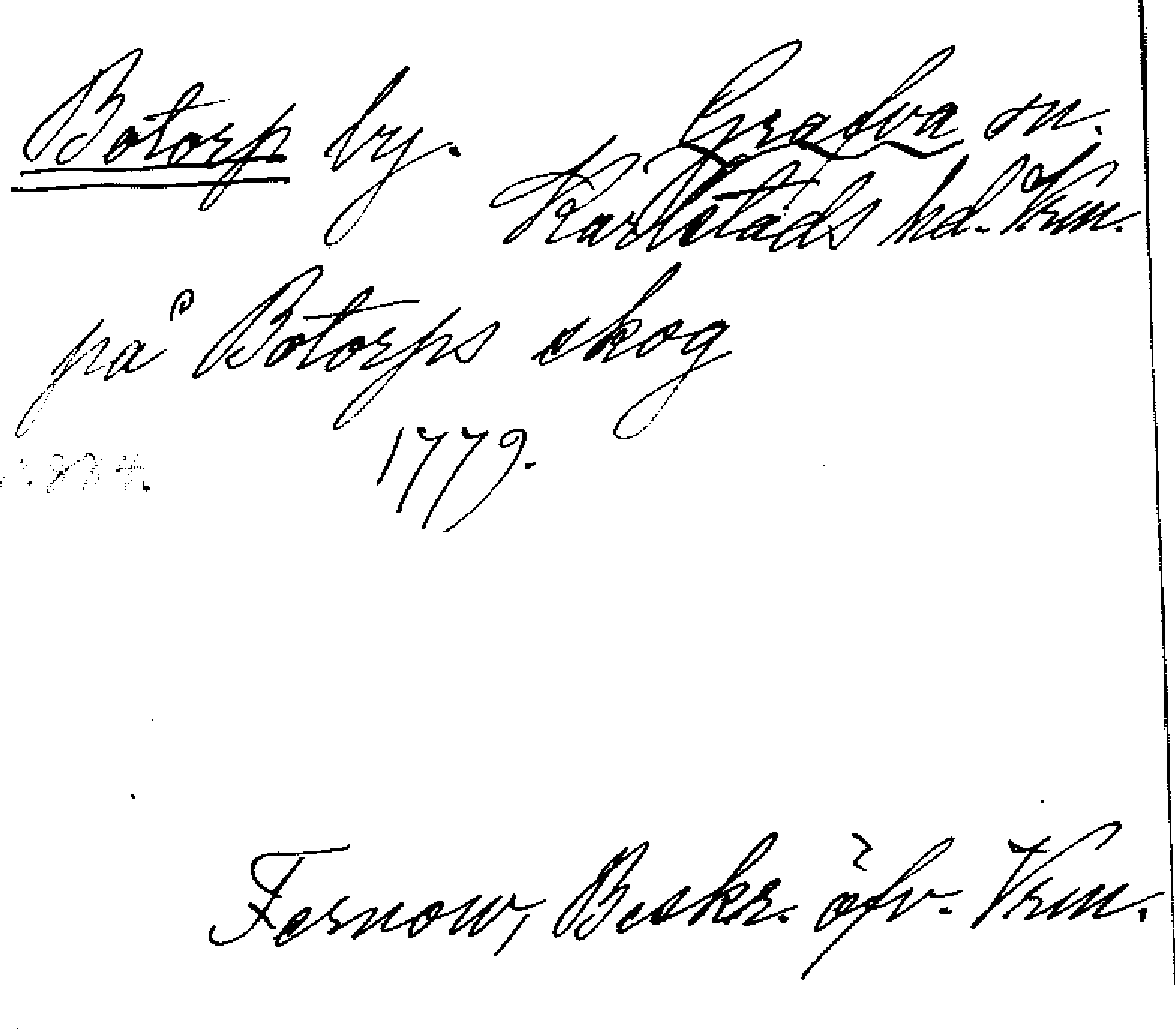 Botorp by. Grafva sn.
Karlstads hd. Vrm.
på Botorps skog
1779.
Fernow, Beskr. öfv. Vrm.